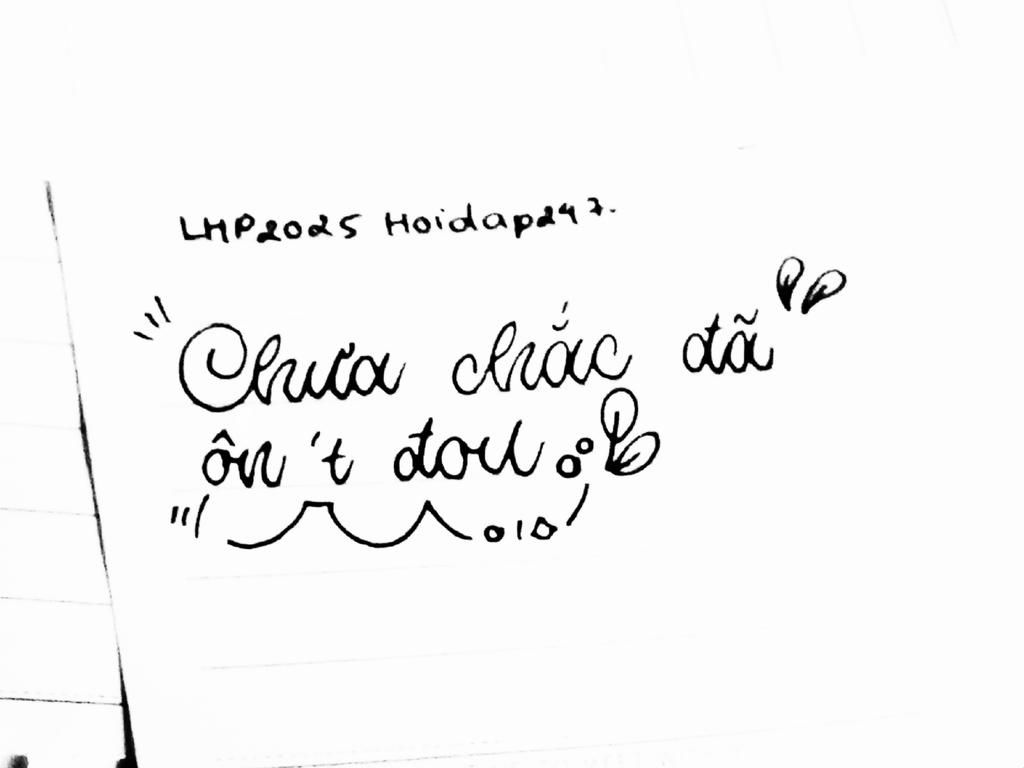 LHP2025 Hoidap247.
Chưa chắc đã
ôn 't đou